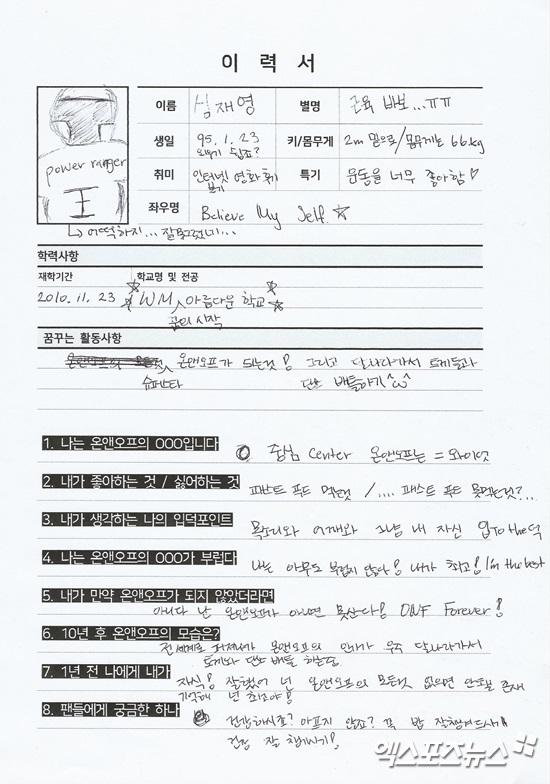 이 력 서
이름 심재영 별명 근육 바보...ㅠㅠ
생일 95. 1. 23 키/몸무게 2m 밑으로/몸무게는 66kg
외우기 쉽죠?
취미 인터넷 영화 후기 보기 특기 운동을 너무 좋아함♡
좌우명 Believe My Self ☆
power ranger
王
↳ 어떡하지... 잘못그렸네...
학력사항
재학기간 학교명 및 전공
2010. 11. 23 ☆WM 아름다운 학교☆
꿈의 시작
꿈꾸는 활동사항
온앤오프가 되는것! 그리고 달나라가서 토끼들과
슈퍼스타 댄스 배틀하기^ω^
1. 나는 온앤오프의 OOO입니다 중심 Center 온앤오프는 = 와이엇
2. 내가 좋아하는 것 / 싫어하는 것 패스트 푸드 먹는것 /.... 패스트 푸드 못먹는것?...
3. 내가 생각하는 나의 입덕포인트 목소리와 어깨와 그냥 내 자신 입To the덕
4. 나는 온앤오프의 OOO가 부럽다 나는 아무도 부럽지 않다! 내가 최고! I'm the best
5. 내가 만약 온앤오프가 되지 않았더라면
아니다 난 온앤오프가 아니면 못산다! ONF Forever!
6. 10년 후 온앤오프의 모습은?
전세계로 퍼져나가 온앤오프의 우주 달나라가서
토끼와 댄스 배틀
7. 1년 전 나에게 내가
자식! 잘했어 넌 온앤오프의 모든것 없으면 안되는 존재
기억해 넌 최고야!
8. 팬들에게 궁금한 하나
건강하시죠? 아프지 않죠? 꼭 밥 잘챙겨드시고
건강 잘 챙기기!
엑스포츠뉴스